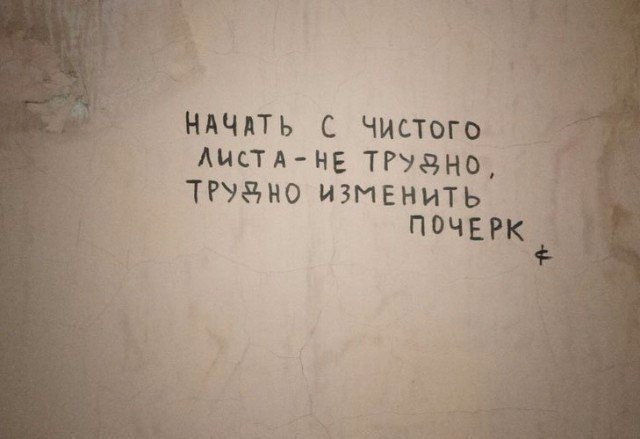 НАЧАТЬ С ЧИСТОГО
ЛИСТА - НЕ ТРУДНО,
ТРУДНО ИЗМЕНИТЬ
ПОЧЕРК